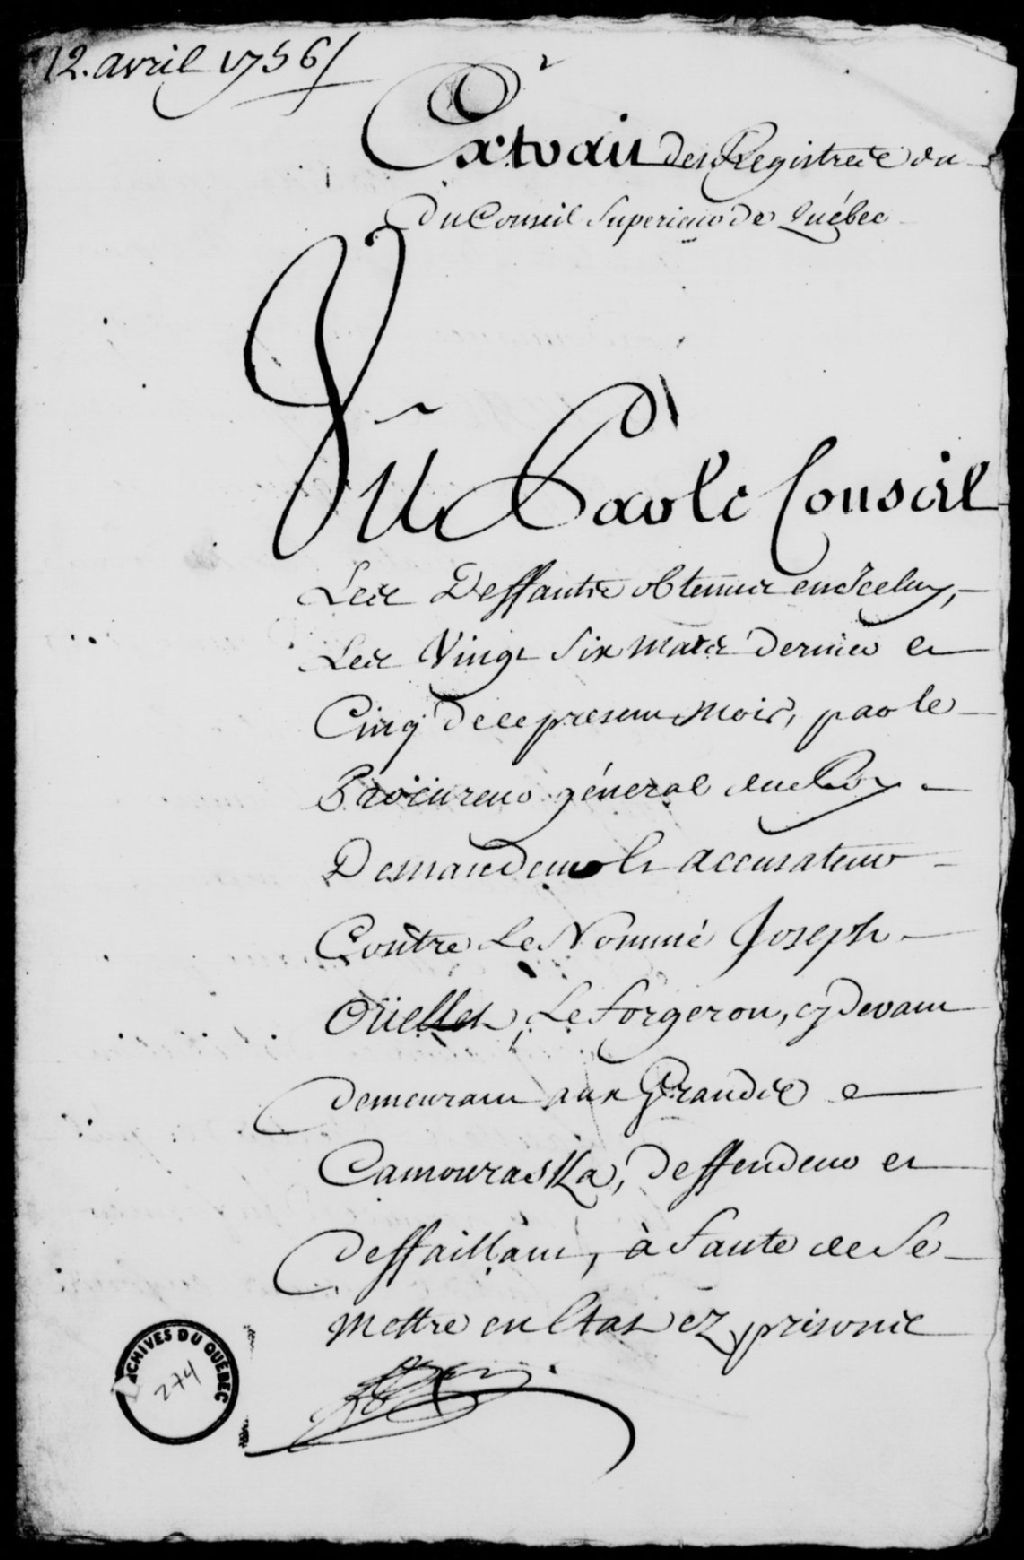 12. avril 1756/
Extrait des Registres du
du Conseil Superieur de Québec
Vu Par le Conseil
Les Deffauts obtenus en Iceluy,
Les Vingt Six Mars dernier et
Cinq de ce present Mois, par le
Procureur général du Roy
Demandeur et accusateur
Contre Le Nommé Joseph
Oüellet, Le forgeron, cy devant
demeurant aux Grandes
Camouraska, deffendeur et
deffaillant, à faute de Se
Mettre en Etat ez prisons
ARCHIVES DU QUÉBEC
274